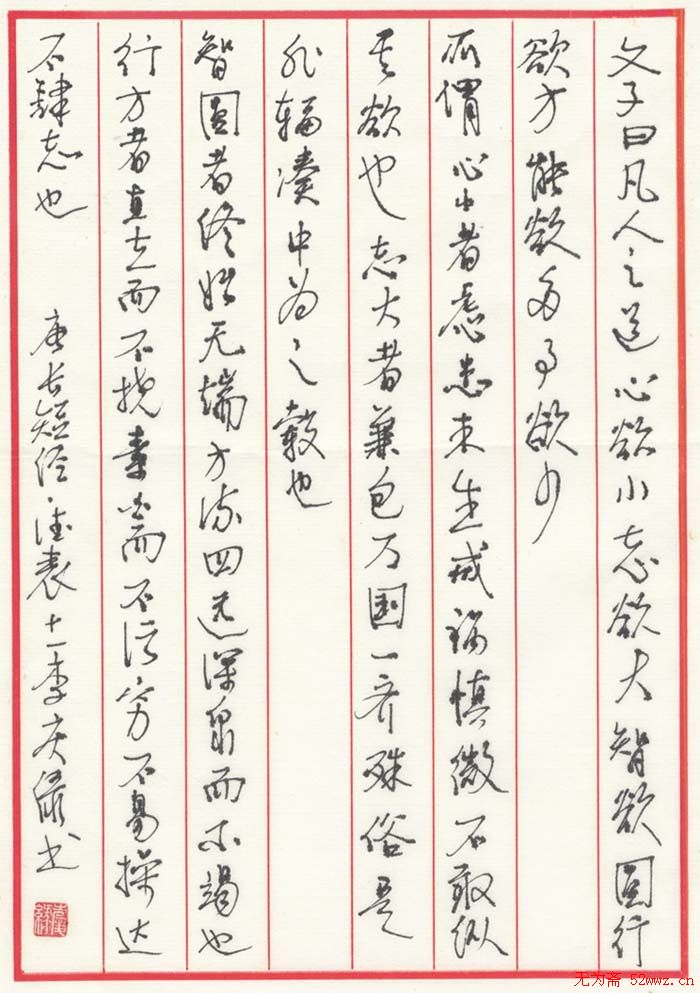 文子曰凡人之道心欲小志欲大智欲圆行
欲方能欲多事欲少
所谓心小者虑患未生戒祸慎微不敢纵
其欲也志大者兼包万国一齐殊俗是
非辐凑中为之毂也
智圆者终始无端方流四远深泉而不竭也
行方者直立而不挠素白而不污穷不易操达
不肆志也
唐长短经·德表十一李庆绿书
无为斋 52wwz.cn